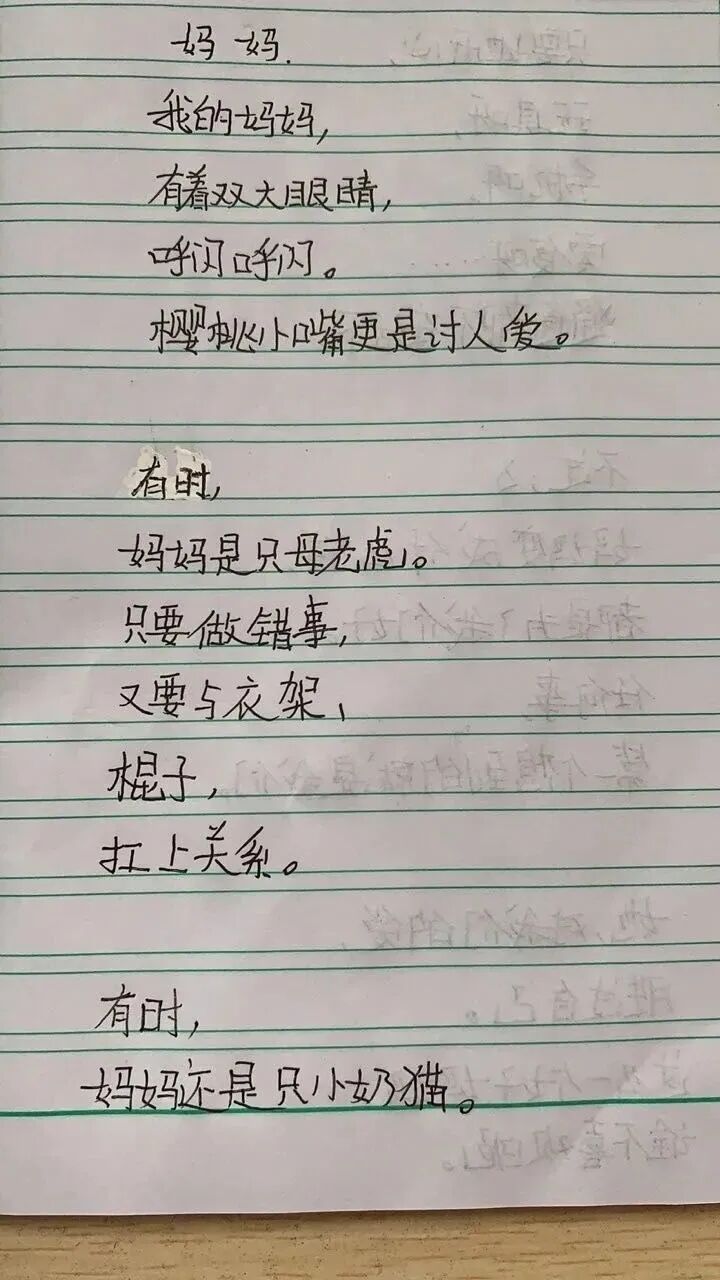 妈妈.
我的妈妈,
有着双大眼睛,
呼闪呼闪。
樱桃小嘴更是讨人爱。
有时,
妈妈是只母老虎。
只要做错事,
又要与衣架、
棍子,
扛上关系。
有时,
妈妈还是只小奶猫。